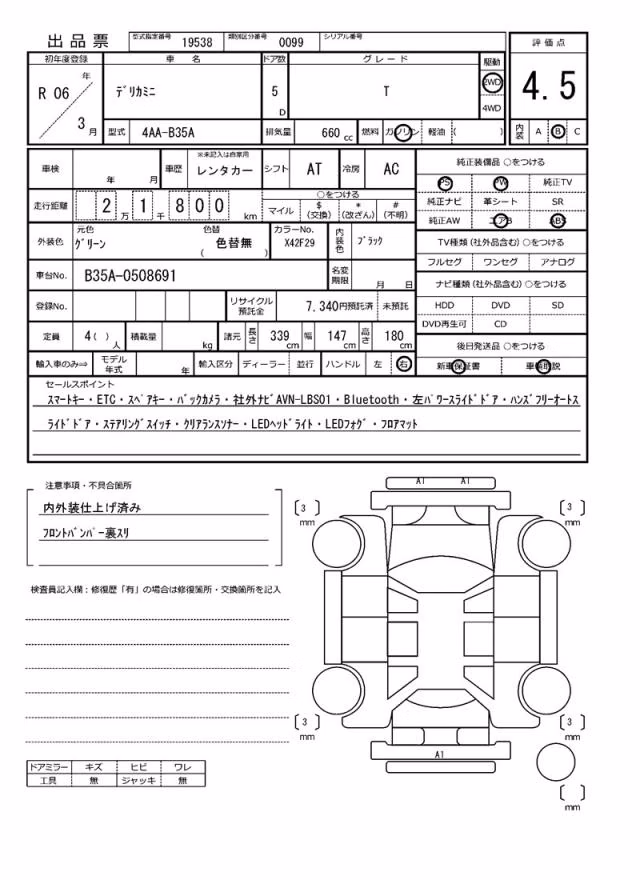 出品票 型式指定番号 19538 類別区分番号 0099 シリアル番号
評価点
4.5
内装 A B C
初年度登録 車名 ドア数 グレード 駆動
R 06 年 3 月 デリカミニ 5 D T 2WD 4WD
型式 4AA-B35A 排気量 660 cc 燃料 ガソリン 軽油 ( )
車検 年 月 車歴 ※未記入は自家用 レンタカー シフト AT 冷房 AC
走行距離 2 万 1 千 8 0 0 km
○をつける
マイル $ (交換) * (改ざん) # (不明)
外装色 元色 グリーン 色替 ( 色替無 ) カラーNo. X42F29 内装色 ブラック
車台No. B35A-0508691 名変期限 月 日
登録No. リサイクル預託金 7,340円預託済 未預託
定員 4 ( ) 人 積載量 kg 諸元 長さ 339 cm 幅 147 cm 高さ 180 cm
輸入車のみ⇒ モデル年式 年 輸入区分 ディーラー ・ 並行 ハンドル 左 ・ 右
純正装備品 ○をつける
PS PW 純正TV
純正ナビ 革シート SR
純正AW エアB ABS
TV種類 (社外品含む) ○をつける
フルセグ ワンセグ アナログ
ナビ種類 (社外品含む) ○をつける
HDD DVD SD
DVD再生可 CD
後日発送品 ○をつける
新車保証書 車輌取説
セールスポイント
スマートキー・ETC・スペアキー・バックカメラ・社外ナビAVN-LBS01・Bluetooth・左パワースライドドア・ハンズフリーオートス
ライドドア・ステアリングスイッチ・クリアランスソナー・LEDヘッドライト・LEDフォグ・フロアマット
注意事項・不具合箇所
内外装仕上げ済み
フロントバンパー裏スリ
検査員記入欄：修復歴「有」の場合は修復箇所・交換箇所を記入
A1 A1
( 3 ) mm ( 3 ) mm
( 3 ) mm ( 3 ) mm
A1
( ) mm
ドアミラー キズ ヒビ ワレ
工具 無 ジャッキ 無